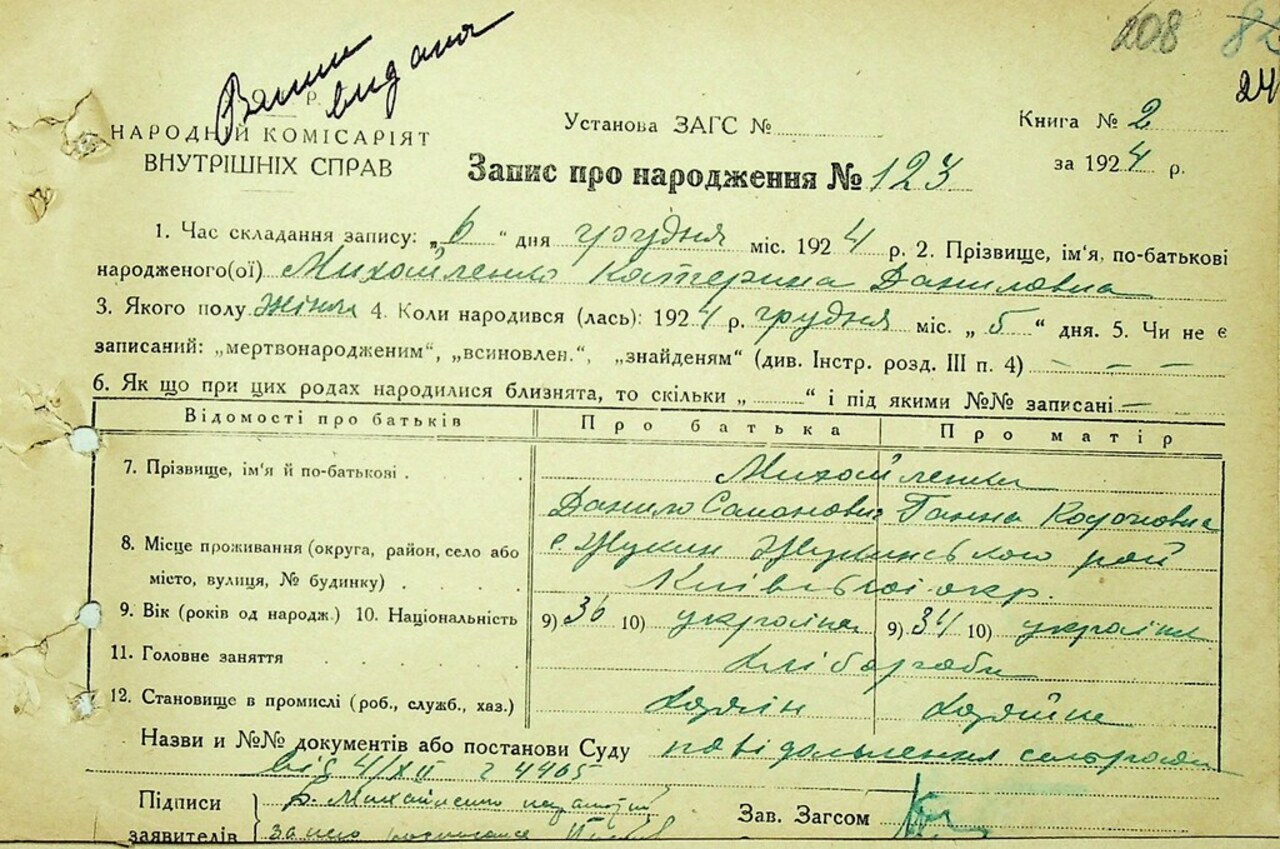 208 82
24
Виписи
видані
р.
НАРОДНІЙ КОМІСАРІЯТ
ВНУТРІШНІХ СПРАВ
Установа ЗАГС №
Книга № 2
за 1924 р.
Запис про народження № 123
1. Час складання запису: „6“ дня грудня міс. 1924 р. 2. Прізвище, ім'я, по-батькові
народженого(ої) Михайленко Катерина Даниловна
3. Якого полу жіноч 4. Коли народився (лась): 1924 р. грудня міс. „5“ дня. 5. Чи не є
записаний: „мертвонародженим“, „всиновлен.“, „знайденям“ (див. Інстр. розд. III п. 4) — — —
6. Як що при цих родах народилися близнята, то скільки „ “ і під якими №№ записані —
Відомості про батьків Про батька Про матір
7. Прізвище, ім'я й по-батькові . Михайленки
Данило Ганна
8. Місце проживання (округа, район, село або с. Жукин Жукинського рай
місто, вулиця, № будинку) . Київської окр.
9. Вік (років од народж.) 10. Національність 9) 36 10) україн. 9) 34 10) україн
11. Головне заняття хлібороби
12. Становище в промислі (роб., служб., хаз.) хазяїн хазяйка
Назви и №№ документів або постанови Суду повідомлення сельради
від 4/XII 4465
Підписи Михайленко
заявителів за
Зав. Загсом